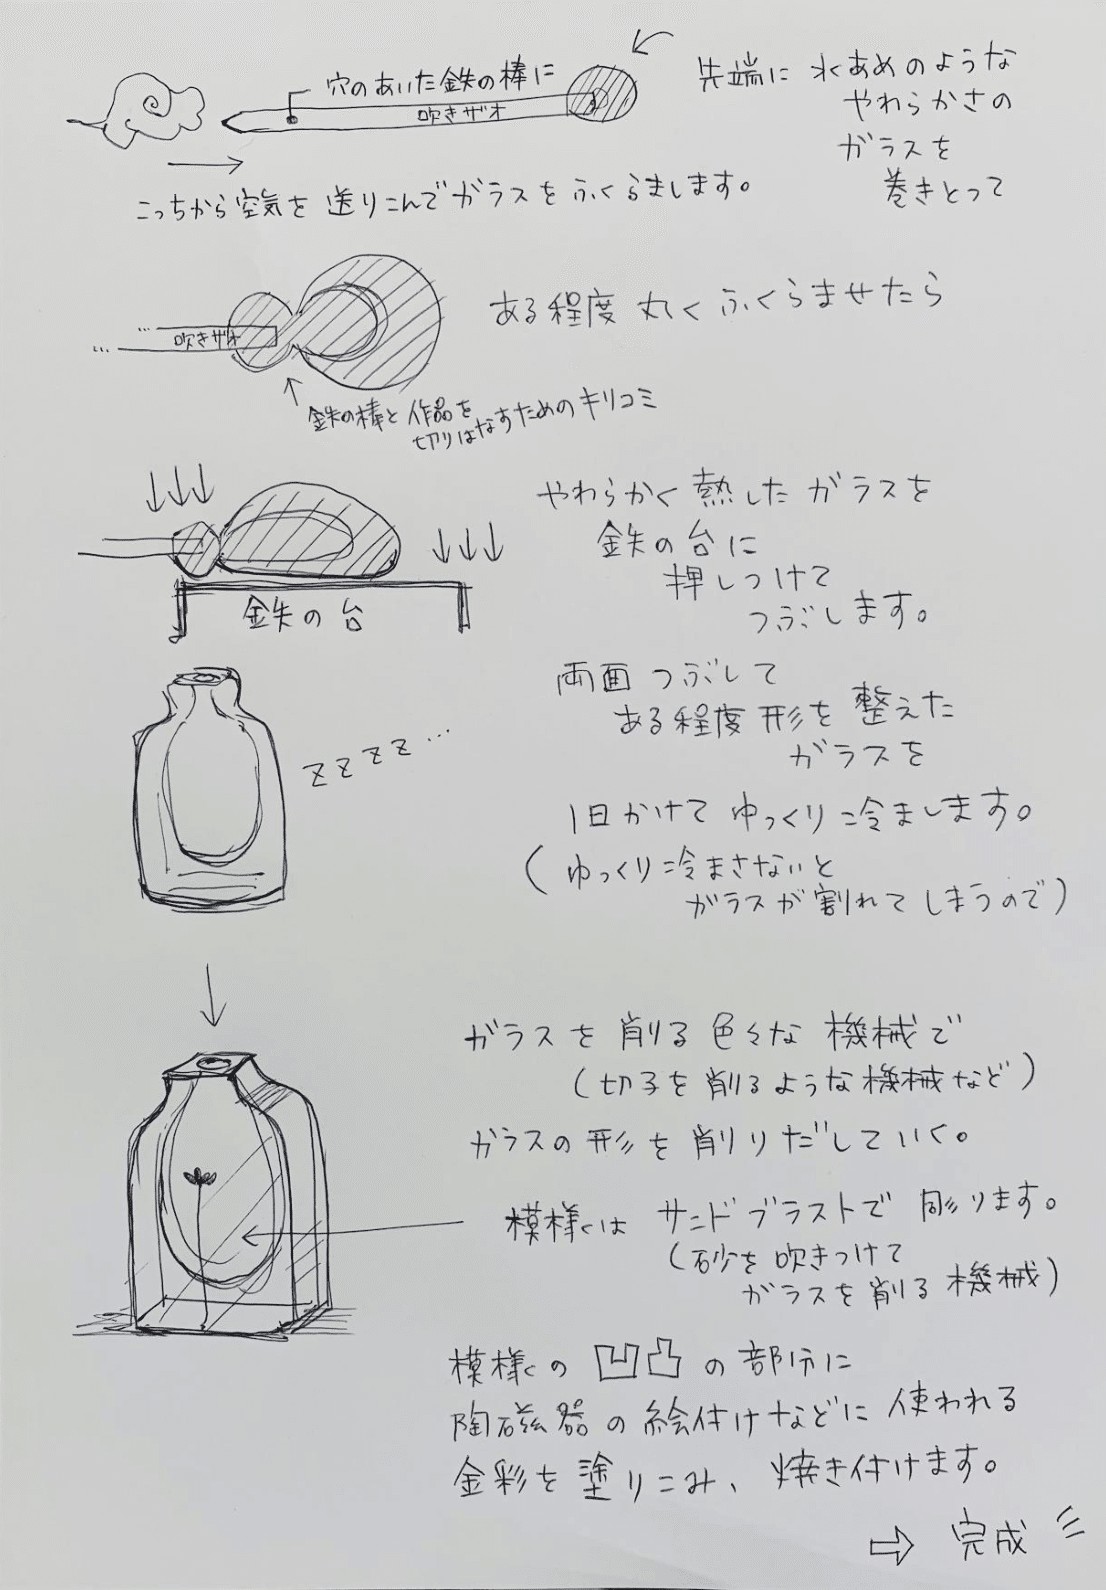 穴のあいた鉄の棒に
吹きザオ
先端に水あめのような
やわらかさの
ガラスを
巻きとって
こっちから空気を送りこんでガラスをふくらまします。
ある程度丸くふくらませたら
吹きザオ
鉄の棒と作品を
切りはなすためのキリコミ
やわらかく熱したガラスを
鉄の台に
押しつけて
つぶします。
鉄の台
両面つぶして
ある程度形を整えた
ガラスを
zzzz…
1日かけてゆっくり冷まします。
(ゆっくり冷まさないと
ガラスが割れてしまうので)
ガラスを削る色々な機械で
(切子を削るような機械など)
ガラスの形を削りだしていく。
模様は サンドブラストで彫ります。
(砂を吹きつけて
ガラスを削る機械)
模様の凹凸の部分に
陶磁器の絵付けなどに使われる
金彩を塗りこみ、焼き付けます。
⇨ 完成